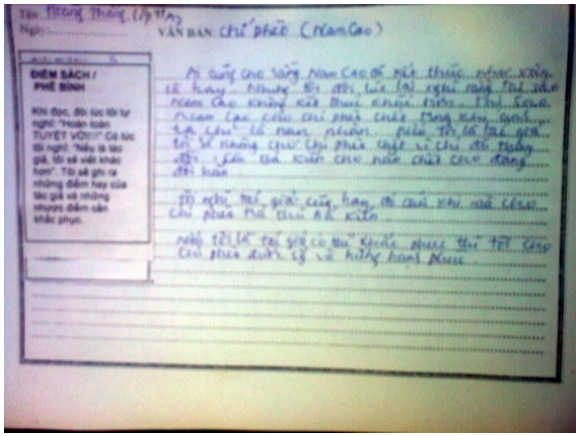 Tên: Hoàng Thăng, Lớp 11A7
Ngày: VĂN BẢN Chí phèo (Nam Cao)
ĐIỂM SÁCH /
PHÊ BÌNH
Khi đọc, đôi lúc tôi tự
nghĩ: "Hoàn toàn
TUYỆT VỜI!!!" Có lúc
tôi nghĩ: "Nếu là tác
giả, tôi sẽ viết khác
hơn". Tôi sẽ ghi ra
những điểm hay của
tác giả và những
nhược điểm cần
khắc phục.
Ai cũng cho rằng Nam Cao đã kết thúc như vậy
là hay. Nhưng tôi đôi lúc lại nghĩ rằng tại sao
Nam Cao không kết thúc khác hơn.
Nam Cao cho chí phèo chết
là nạn nhân. nếu tôi là tác giả
tôi sẽ không cho chí phèo chết vì chí đã thay
đổi Bá Kiến cho hắn chết cho đáng
đời hắn.
Tôi nghĩ tác giả cũng hay ở chỗ khi mà cho
chí phèo trả thù Bá Kiến.
Nếu tôi là tác giả có thể khắc phục thì tôi cho
chí phèo được và hưởng hạnh phúc.